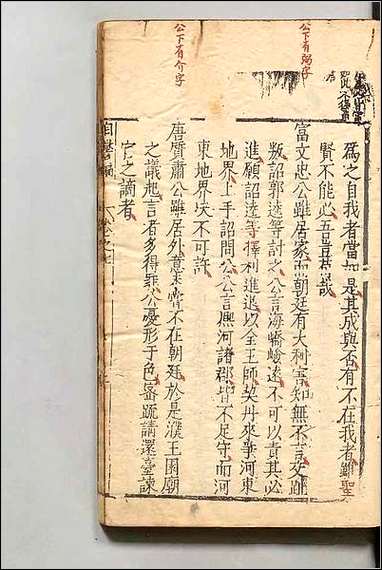 公下有弼字
公下有介字
為之自我者當如是其成與否有不在我者雖聖
賢不能必吾豈苟哉
富文忠公雖居家而朝廷有大利害知無不言交趾
叛詔郭逵等討之公言海嶠嶮遠不可以責其必
進願詔逵等擇利進退以全王師契丹來爭河東
地界上手詔問公公言熙河諸郡皆不足守而河
東地界決不可許
唐質肅公雖居外意未嘗不在朝廷於是濮王園廟
之議起言者多得罪公憂形于色密疏請還臺諫
官之謫者
自警編
卷之七